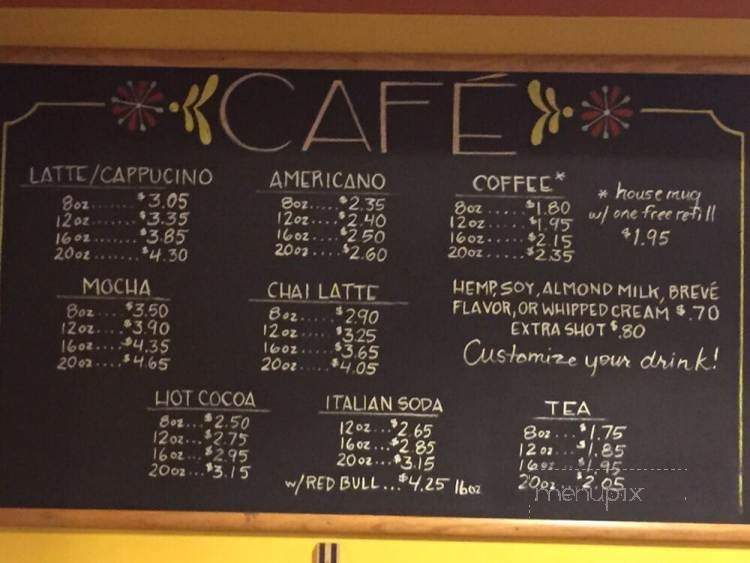 CAFÉ
LATTE/CAPPUCINO
8oz.......$3.05
12oz.......$3.35
16oz.......$3.85
20oz.......$4.30
AMERICANO
8oz....$2.35
12oz....$2.40
16oz....$2.50
20oz....$2.60
COFFEE*
8oz.....$1.80
12oz.....$1.95
16oz.....$2.15
20oz.....$2.35
* house mug
w/ one free refill
$1.95
MOCHA
8oz....$3.50
12oz...$3.90
16oz...$4.35
20oz...$4.65
CHAI LATTE
8oz....$2.90
12oz....$3.25
16oz....$3.65
20oz....$4.05
HEMP, SOY, ALMOND MILK, BREVÉ
FLAVOR, OR WHIPPED CREAM $.70
EXTRA SHOT $.80
Customize your drink!
HOT COCOA
8oz...$2.50
12oz...$2.75
16oz...$2.95
20oz...$3.15
ITALIAN SODA
12oz...$2.65
16oz...$2.85
20oz...$3.15
w/RED BULL...$4.25 16oz
TEA
8oz...$1.75
12oz...$1.85
16oz...$1.95
20oz...$2.05
menupix